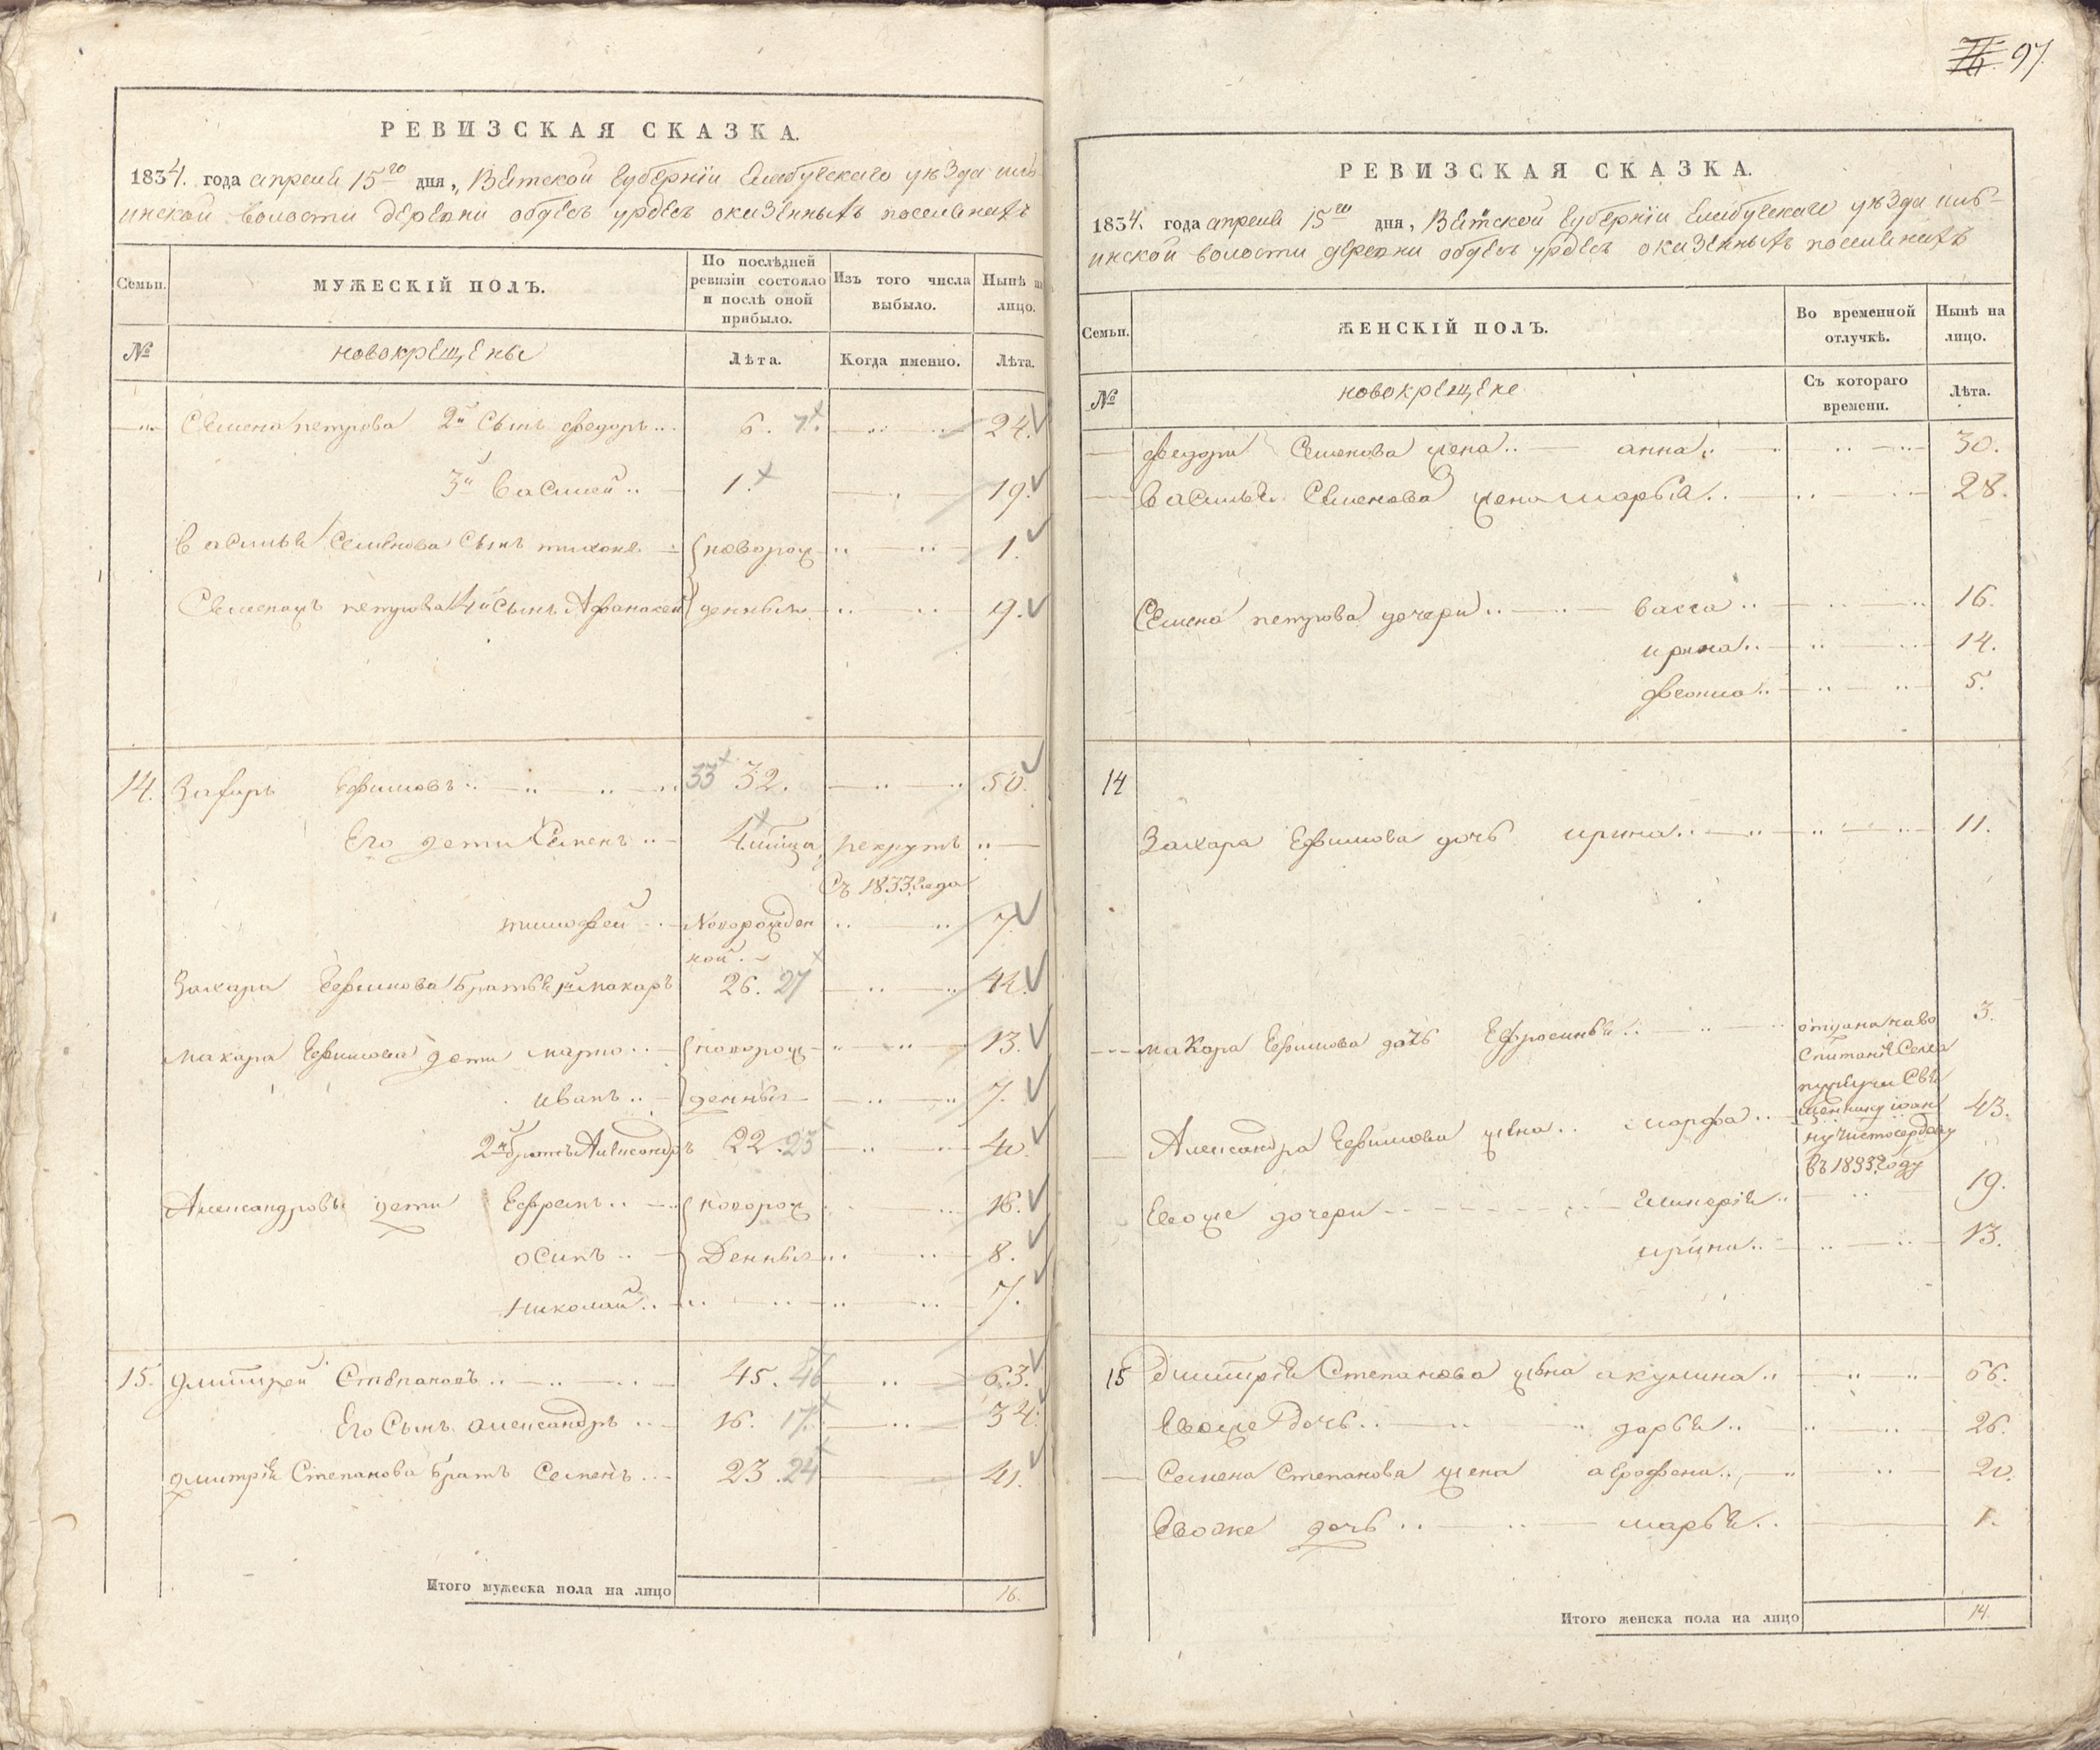 97.
РЕВИЗСКАЯ СКАЗКА.
1834. года апреля 15го дня, Вятской Губернїи Елабугскаго уѣзда
инской волости деревни обдесъ урдесъ оказенныхъ поселянахъ
Семьи. МУЖЕСКІЙ ПОЛЪ. По послѣдней ревизіи состояло и послѣ оной прибыло. Изъ того числа выбыло. Нынѣ на лицо.
№ новокрещены Лѣта. Когда именно. Лѣта.
Семена петрова 2й Сынъ федоръ 6. 7. 24.
3й василей 1. 19.
василья Семенова Сынъ тихонъ новорож 1.
петрова 4й Сынъ Афанасей денныя 9.
14. Захаръ Ефимовъ 33 32. 50.
Его дети Семенъ рекрутъ
Съ 1833 года
тимофей Новорожден 7.
ной
Захара Ефимова братья 1й макаръ 26. 27 44.
макара Ефимова дети новорож 13.
иванъ денныя 7.
2й братъ Александръ 22. 23 40.
Александровы дети Ефремъ новорож 16.
осипъ Денныя 8.
николай 7.
15. дмитрей Степановъ 45. 46 63.
Его Сынъ александръ 16. 17. 34.
дмитрія Степанова братъ Семенъ 23. 24 41.
Итого мужеска пола на лицо 16.
РЕВИЗСКАЯ СКАЗКА.
1834. года апреля 15го дня, Вятской Губернїи Елабугскаго уѣзда
инской волости деревни обдесъ урдесъ оказенныхъ поселянахъ
Семьи. ЖЕНСКІЙ ПОЛЪ. Во временной отлучкѣ. Нынѣ на лицо.
№ новокрещене Съ котораго времени. Лѣта.
федора Семенова жена анна 30.
василья Семенова жена марья 28.
Семена петрова дочери васса 16.
ирина 14.
5.
14
Захара Ефимова дочь ирина 11.
макара Ефимова дочь Ефросинья отдана наво 3.
спитанїе Села
Свя
щеннику іоан
Александра Ефимова жена марфа 43.
ну чистосердову
въ 1833 году
Евоже дочери 19.
ирина 13.
15 Дмитрїя Степанова жена акулина 66.
Евоже дочь дарья 26.
Семена Степанова жена аграфена 20.
Евоже дочь марья 1.
Итого женска пола на лицо 14.